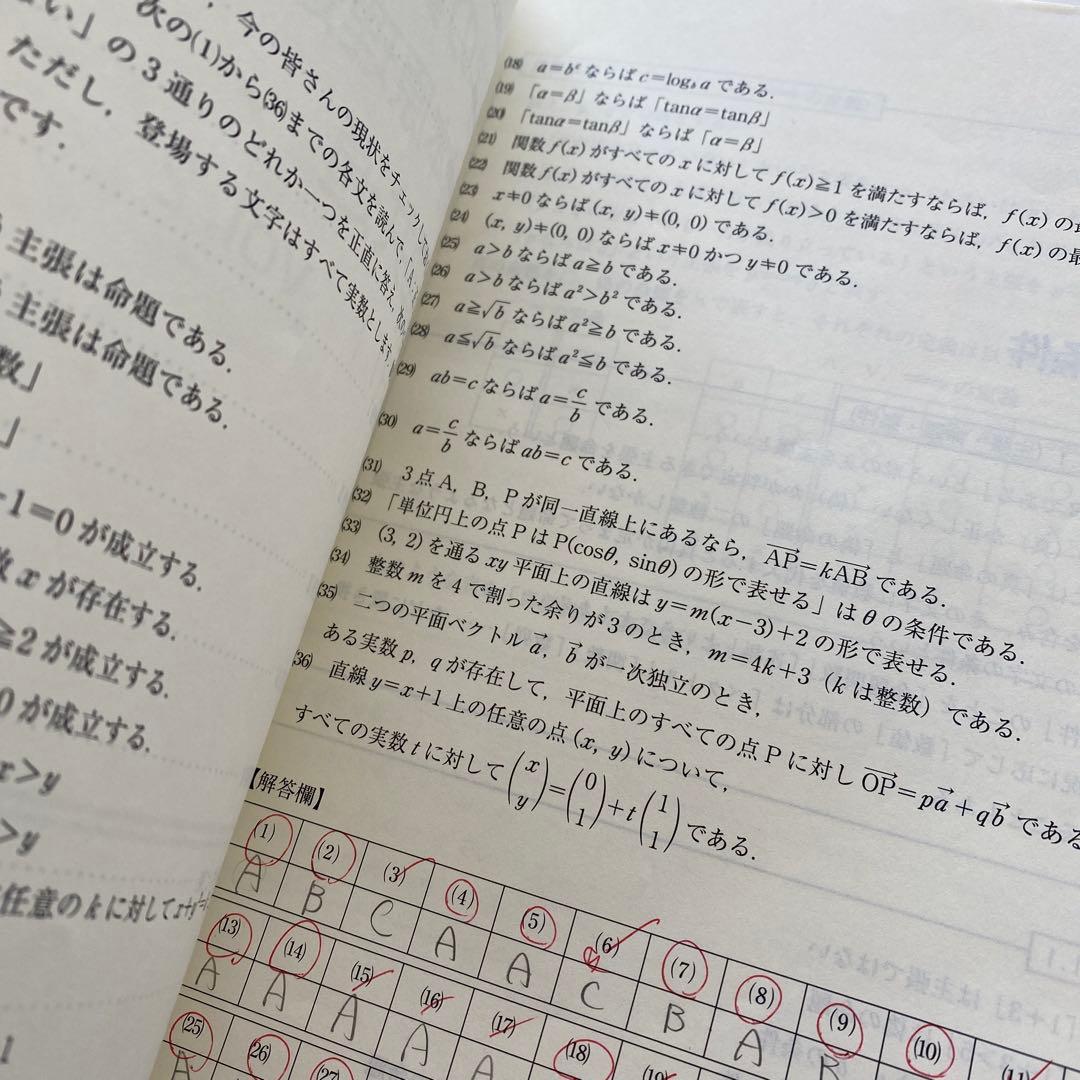 今の皆さんの現状をチェックして
次の(1)から(36)までの各文を読んで,「A
い」の3通りのどれか一つを正直に答え,
ただし,登場する文字はすべて実数とします.
です.
主張は命題である.
主張は命題である.
数」
」
-1=0が成立する.
数xが存在する.
≧2が成立する.
0が成立する.
x>y
>y
任意のkに対して
1
(18) a=b^c ならば c=log_b a である.
(19) 「α=β」ならば「tanα=tanβ」
(20) 「tanα=tanβ」ならば「α=β」
(21) 関数 f(x) がすべての x に対して f(x)≧1 を満たすならば, f(x) の最
(22) 関数 f(x) がすべての x に対して f(x)>0 を満たすならば, f(x) の最
(23) x≠0 ならば (x, y)≠(0, 0) である.
(24) (x, y)≠(0, 0) ならば x≠0 かつ y≠0 である.
(25) a>b ならば a≧b である.
(26) a>b ならば a²>b² である.
(27) a≧√b ならば a²≧b である.
(28) a≦√b ならば a²≦b である.
(29) ab=c ならば a=c/b である.
(30) a=c/b ならば ab=c である.
(31) 3点 A, B, P が同一直線上にあるなら, AP→=kAB→ である.
(32) 「単位円上の点 P は P(cosθ, sinθ) の形で表せる」は θ の条件である.
(33) (3, 2) を通る xy 平面上の直線は y=m(x-3)+2 の形で表せる.
(34) 整数 m を 4 で割った余りが 3 のとき, m=4k+3 (k は整数) である.
(35) 二つの平面ベクトル a→, b→ が一次独立のとき,
ある実数 p, q が存在して, 平面上のすべての点 P に対し OP→=pa→+qb→ である
(36) 直線 y=x+1 上の任意の点 (x, y) について,
すべての実数 t に対して (x y)=(0 1)+t(1 1) である.
【解答欄】
(1) (2) (3) (4) (5) (6) (7) (8) (9) (10) (11)
A B C A A C B A B
(13) (14) (15) (16) (17) (18) (19)
A A A A A
(25) (26) (27)
A